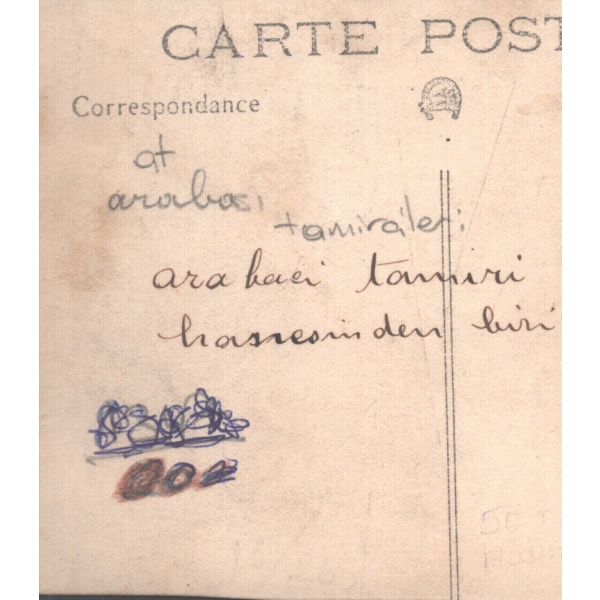 CARTE POST
Correspondance
at
arabası
tamiratı
arabaci tamiri
hanesinden biri
50 T